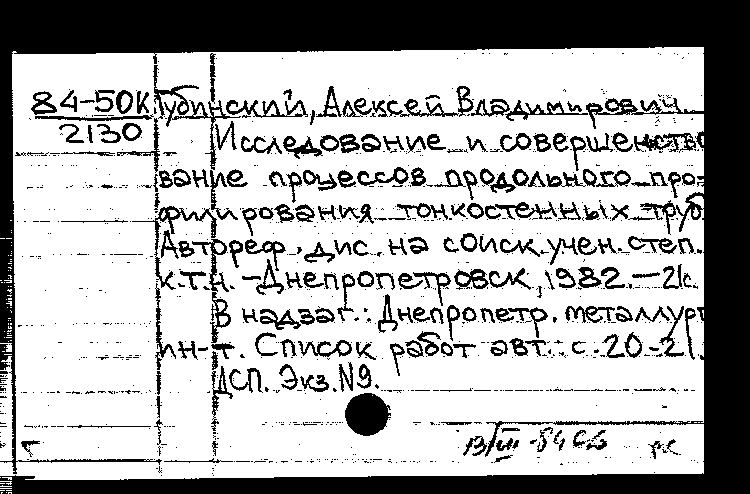 84-50К Губинский, Алексей Владимирович
2130 Исследование и совершенство-
вание процессов продольного про-
филирования тонкостенных труб
Автореф. дис. на соиск. учен. степ.
к.т.н. – Днепропетровск, 1982. – 21с.
В надзаг.: Днепропетр. металлург
ин-т. Список работ авт.: с. 20-21.
ДСП. Экз. N9.
13/III -84